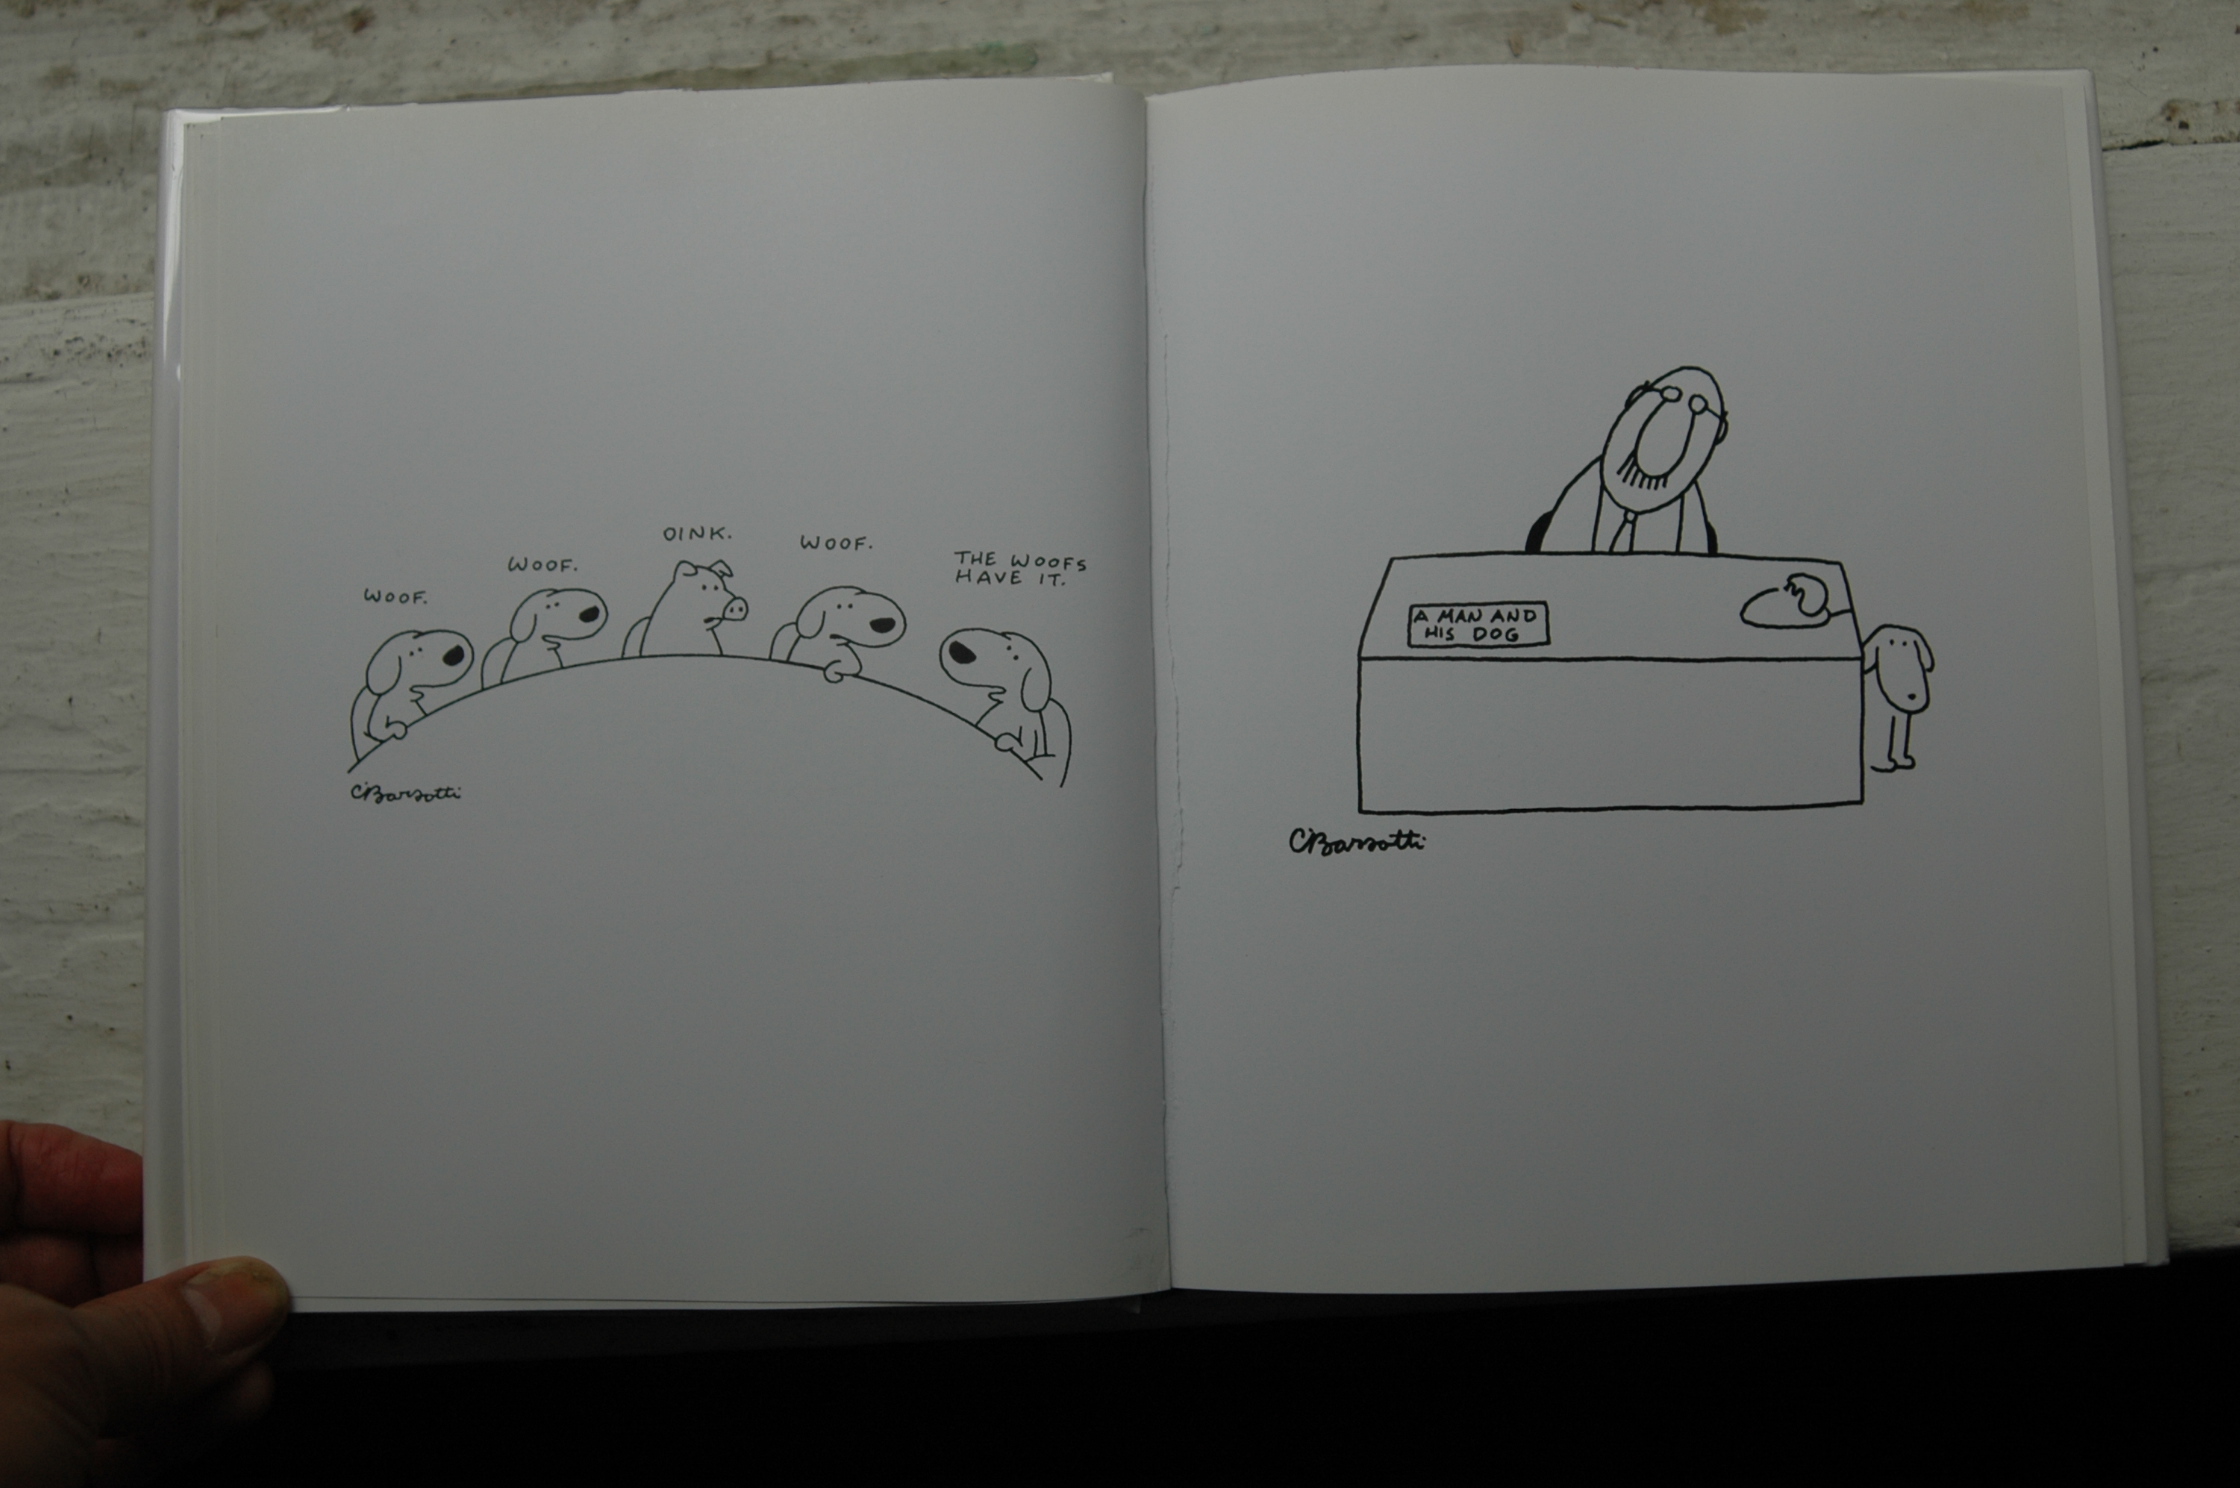 WOOF.
WOOF.
OINK.
WOOF.
THE WOOFS
HAVE IT.
CBarsotti
A MAN AND
HIS DOG
CBarsotti